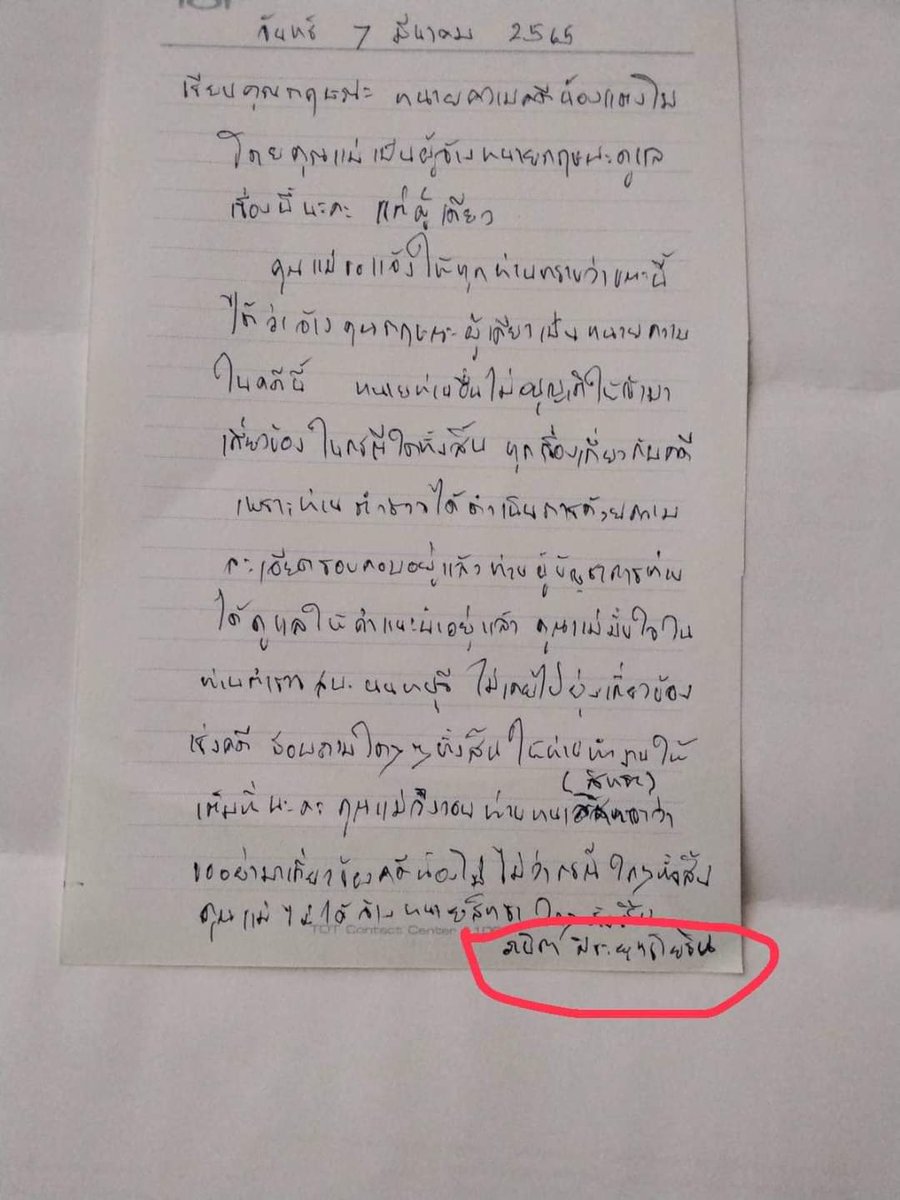 จันทร์ 7 มีนาคม 2565
เรียนคุณกฤษณะ ทนายความคดีน้องแตงโม
โดยคุณแม่เป็นผู้จ้างทนายกฤษณะดูแล
เรื่องนี้นะคะ แต่ผู้เดียว
คุณแม่ขอแจ้งให้ทุกท่านทราบว่าขณะนี้
ได้ว่าจ้างคุณกฤษณะผู้เดียวเป็นทนายความ
ในคดีนี้ ทนายท่านอื่นไม่อนุญาติให้เข้ามา
เกี่ยวข้องในกรณีใดทั้งสิ้น ทุกเรื่องเกี่ยวกับคดี
เพราะท่านตำรวจได้ดำเนินการด้วยความ
ละเอียดรอบคอบอยู่แล้วท่านผู้บัญชาการท่าน
ได้ดูแลให้คำแนะนำอยู่แล้ว คุณแม่มั่นใจใน
ท่านตำรวจ สภ. นนทบุรี ไม่เคยไปยุ่งเกี่ยวข้อง
เรื่องคดี สอบถามใดๆๆทั้งสิ้น ให้ท่านทำงานให้
(สิทธา)
เต็มที่นะคะ คุณแม่จึงวอนท่านทนาย ว่า
ขออย่ามาเกี่ยวข้องคดีน้องโม ไม่ว่ากรณีใดๆทั้งสิ้น
คุณแม่ไม่ได้จ้างทนายสิทธา ใดๆทั้งสิ้น
TOT Contact Center
ภนิดา ศิระยุทธโยธิน